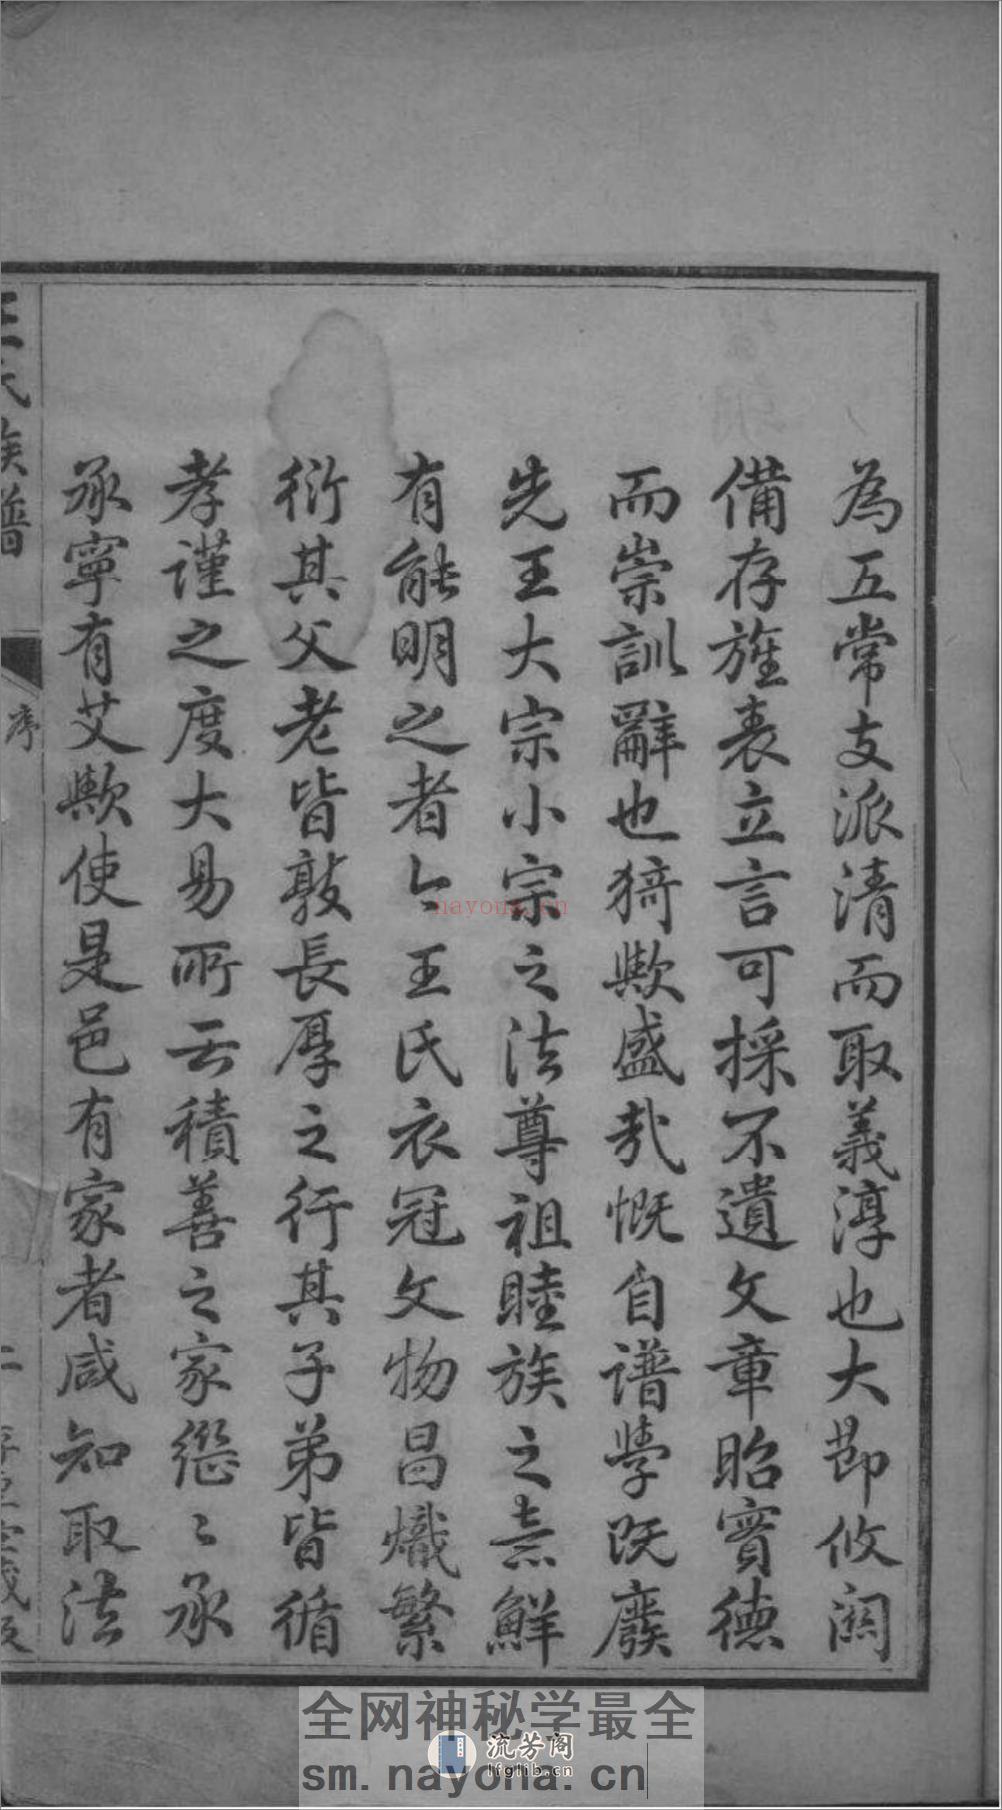 為五常支派清而取義淳也大節攸闗
備存旌表立言可採不遺文章昭實德
而崇訓辭也猗歟盛哉慨自譜學既廢
先王大宗小宗之法尊祖睦族之意鮮
有能明之者今王氏衣冠文物昌熾繁
衍其父老皆敦長厚之行其子弟皆循
孝謹之度大易所云積善之家繩〻承
承寧有艾歟使是邑有家者咸知取法
王氏族譜
序
二
nayona.cn
全网神秘学最全
流芳阁
lfglib.cn
sm.nayona.cn